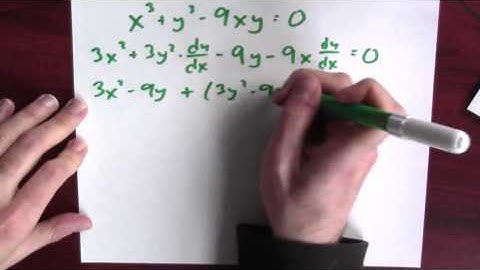 x³ + y³ - 9xy = 0
3x² + 3y² · dy/dx - 9y - 9x dy/dx = 0
3x² - 9y + (3y² - 9